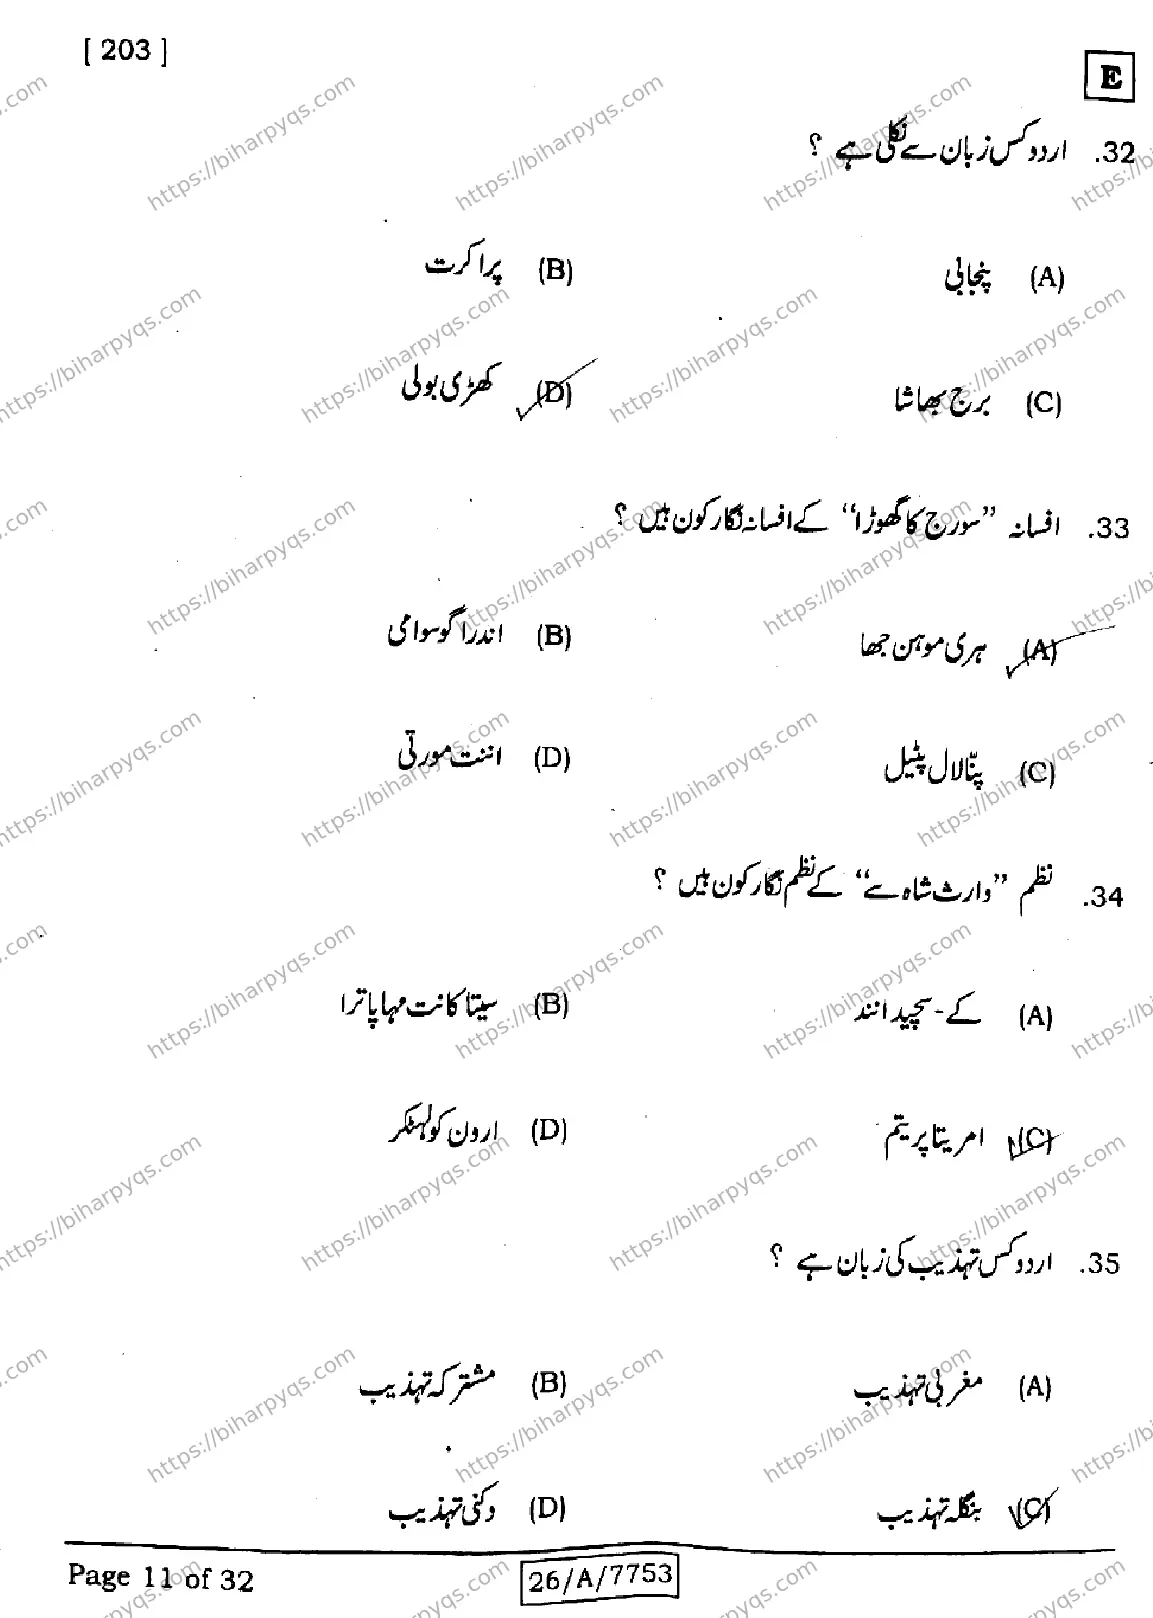 [ 203 ]
E
32. اردو کس زبان سے نکلی ہے ؟
(A) پنجابی (B) پراکرت
(C) برج بھاشا (D) کھڑی بولی
33. افسانہ ”سورج کا گھوڑا“ کے افسانہ نگار کون ہیں ؟
(A) ہری موہن جھا (B) اندرا گوسوامی
(C) پنّا لال پٹیل (D) اننت مورتی
34. نظم ”وارث شاہ سے“ کے نظم نگار کون ہیں ؟
(A) کے - سچیدانند (B) سیتا کانت مہاپاترا
(C) امریتا پریتم (D) ارون کولہٹکر
35. اردو کس تہذیب کی زبان ہے ؟
(A) مغربی تہذیب (B) مشترکہ تہذیب
(C) بنگلہ تہذیب (D) دکنی تہذیب
Page 11 of 32
26/A/7753
https://biharpyqs.com